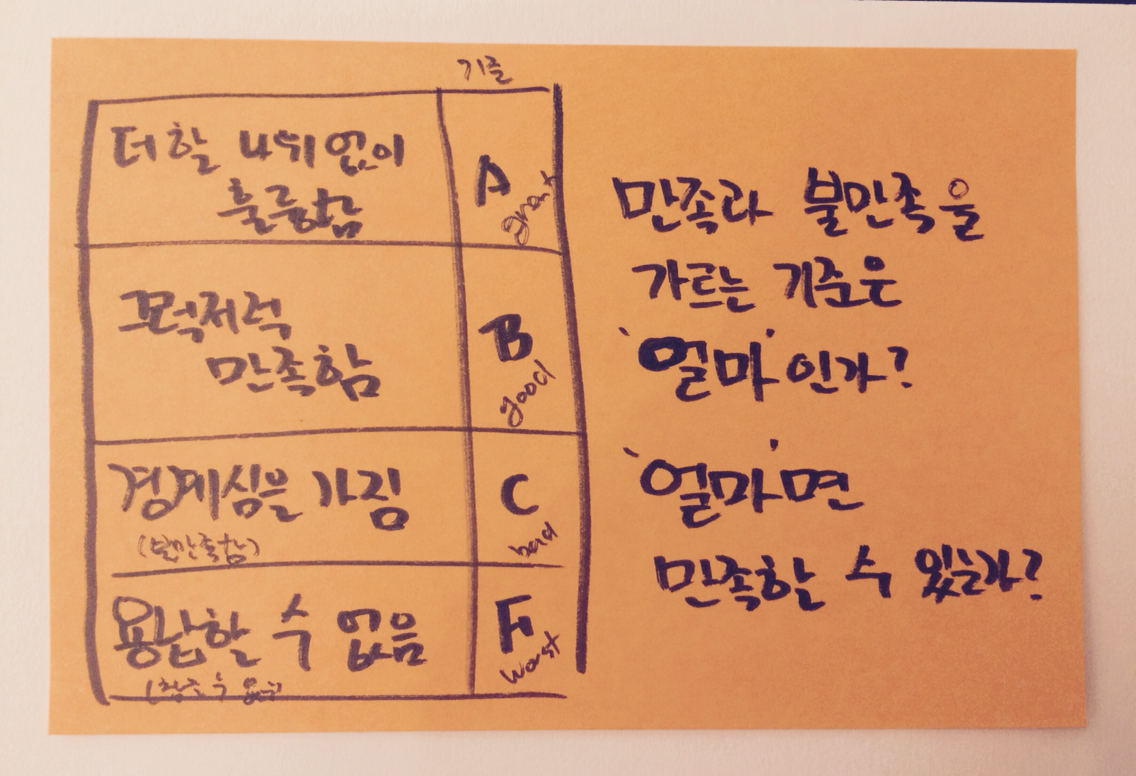 기준
더 할 나위 없이
훌륭함
A
great
그럭저럭
만족함
B
good
경계심을 가짐
(불만족함)
C
bad
용납할 수 없음
F
worst
만족과 불만족을
가르는 기준은
'얼마'인가?
'얼마'면
만족할 수 있는가?